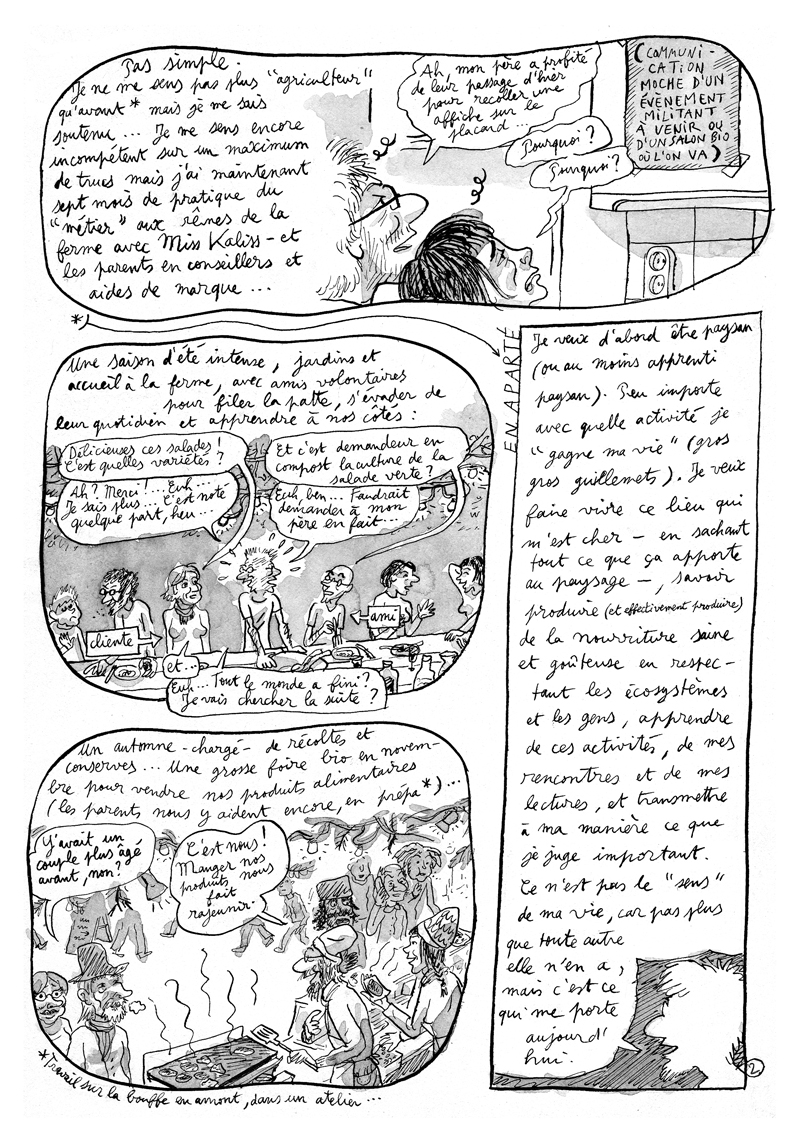 Pas simple.
Je ne me sens pas plus "agriculteur"
qu'avant * mais je me sais
soutenu... Je me sens encore
incompétent sur un maximum
de trucs mais j'ai maintenant
sept mois de pratique du
"métier" aux rênes de la
ferme avec Miss Kaliss - et
les parents en conseillers et
aides de marque...
Ah, mon père a profité
de leur passage d'hier
pour recoller une
affiche sur le
placard...
Pourquoi?
Pourquoi?
(COMMUNI-
CATION
MOCHE D'UN
ÉVÈNEMENT
MILITANT
À VENIR OU
D'UN SALON BIO
OÙ L'ON VA)
*
EN APARTÉ
Une saison d'été intense, jardins et
accueil à la ferme, avec amis volontaires
pour filer la patte, s'évader de
leur quotidien et apprendre à nos côtés :
Délicieuses ces salades!
C'est quelles variétés?
Ah? Merci!... Euh...
Je sais plus... C'est noté
quelque part, heu...
Et c'est demandeur en
compost la culture de la
salade verte?
Euh, ben... Faudrait
demander à mon
père en fait...
cliente
ami
et...
Euh... Tout le monde a fini?
Je vais chercher la suite?
Un automne - chargé - de récoltes et
conserves... Une grosse foire bio en novem-
bre pour vendre nos produits alimentaires
(les parents nous y aident encore, en prépa *)...
Y'avait un
couple plus âgé
avant, non?
C'est nous!
Manger nos
produits nous
fait
rajeunir.
*Travail sur la bouffe en amont, dans un atelier...
Je veux d'abord être paysan
(ou au moins apprenti
paysan). Peu importe
avec quelle activité je
"gagne ma vie" (gros
gros guillemets). Je veux
faire vivre ce lieu qui
m'est cher - en sachant
tout ce que ça apporte
au paysage -, savoir
produire (et effectivement produire)
de la nourriture saine
et goûteuse en respec-
tant les écosystèmes
et les gens, apprendre
de ces activités, de mes
rencontres et de mes
lectures, et transmettre
à ma manière ce que
je juge important.
Ce n'est pas le "sens"
de ma vie, car pas plus
que toute autre
elle n'en a,
mais c'est ce
qui me porte
aujourd'
hui.
2